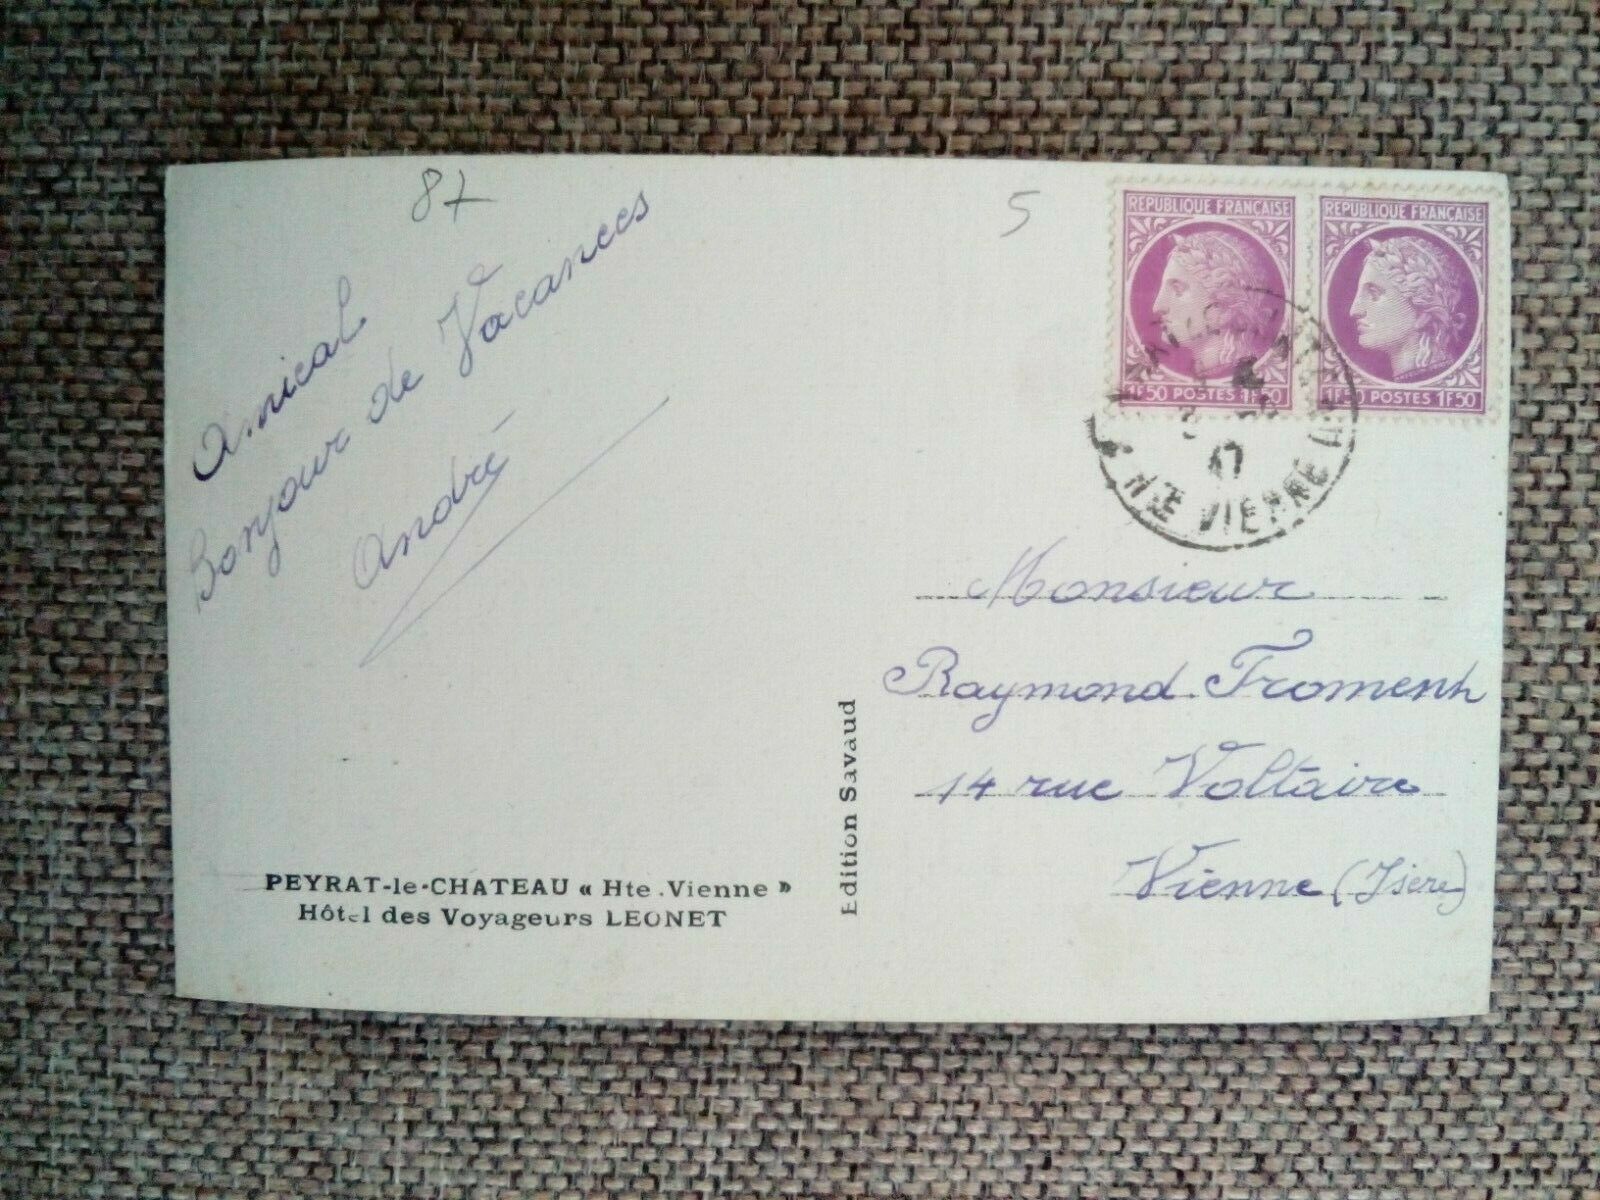 87
5
Amical
Bonjour de Vacances
André
REPUBLIQUE FRANÇAISE
1F50 POSTES 1F50
REPUBLIQUE FRANÇAISE
1F50 POSTES 1F50
47
HTE VIENNE
Monsieur
Raymond Froment
14 rue Voltaire
Vienne (Isère)
Edition Savaud
PEYRAT-le-CHATEAU « Hte.Vienne »
Hôtel des Voyageurs LEONET